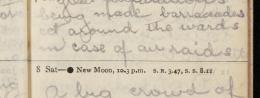 being made barracades
around the wards
in case of air raids
8 Sat—● New Moon, 10.3 p.m. S. R. 3.47, S. S. 8.11
A big crowd of